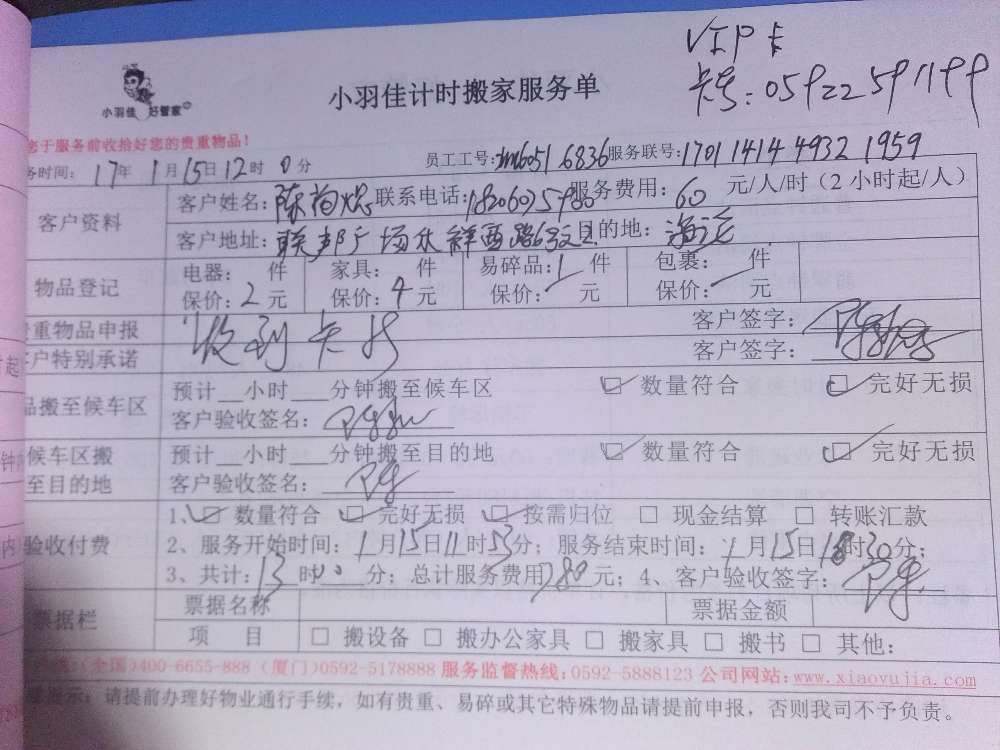 VIP卡
卡号:05922591199
小羽佳 好管家
小羽佳计时搬家服务单
您于服务前收拾好您的贵重物品!
务时间: 17年 1月15日12时 0分 员工工号: 6836 服务联号:1701 1414 4932 1959
客户资料
客户姓名:陈 联系电话: 服务费用:60 元/人/时(2小时起/人)
客户地址:联邦广场 目的地:海沧
物品登记
电器: 件 家具: 件 易碎品: 件 包裹: 件
保价:2元 保价:4元 保价: 元 保价: 元
贵重物品申报 收到卡 客户签字:
客户特别承诺 客户签字:
品搬至候车区
预计__小时___分钟搬至候车区 ☑ 数量符合 ☑ 完好无损
客户验收签名:
候车区搬至目的地
预计__小时___分钟搬至目的地 ☑ 数量符合 ☑ 完好无损
客户验收签名:
验收付费
1、☑ 数量符合 ☑ 完好无损 ☑ 按需归位 □ 现金结算 □ 转账汇款
2、服务开始时间:1月15日11时53分;服务结束时间:1月15日18时30分;
3、共计:13时 分;总计服务费用780元;4、客户验收签字:
票据栏
票据名称 票据金额
项 目 □ 搬设备 □ 搬办公家具 □ 搬家具 □ 搬书 □ 其他:
(全国)400-6655-888 (厦门)0592-5178888 服务监督热线:0592-5888123 公司网站:www.xiaoyujia.com
提示:请提前办理好物业通行手续,如有贵重、易碎或其它特殊物品请提前申报,否则我司不予负责。